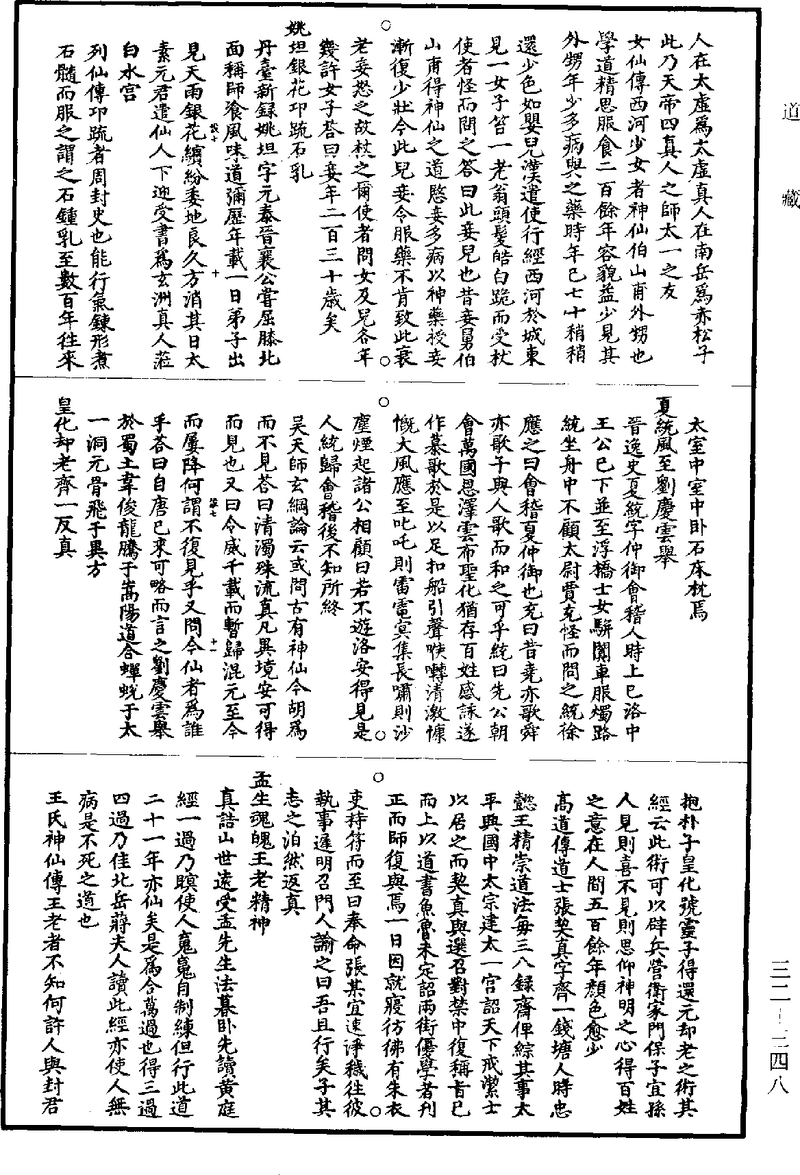 道藏
人在太虛爲太虛真人在南岳爲赤松子
此乃天帝四真人之師太一之友
女仙傳西河少女者神仙伯山甫外甥也
學道精思服食二百餘年容貌益少見其
外甥年少多病與之藥時年已七十稍稍
還少色如嬰兒漢遣使行經西河於城東
見一女子笞一老翁頭髮皓白跪而受杖
使者怪而問之答曰此妾兒也昔妾舅伯
山甫得神仙之道愍妾多病以神藥授妾
漸復少壯今此兒妾令服藥不肯致此衰
老妾恚之故杖之爾使者問女及兒各年
幾許女子荅曰妾年二百三十歲矣
姚坦銀花卭疏石乳
丹臺新録姚坦字元泰晉襄公嘗屈膝北
面稱師飡風味道彌歷年載一日弟子出
見天雨銀花繽紛委地良久方消其日太
素元君遣仙人下迎受書爲玄洲真人莅
白水宫
列仙傳卭疏者周封史也能行氣鍊形煮
石髓而服之謂之石鍾乳至數百年往來
太室中室中卧石床枕焉
夏統風至劉慶雲舉
晉逸史夏統字仲御會稽人時上巳洛中
王公已下並至浮橋士女駢闐車服燭路
統坐舟中不顧太尉賈充怪而問之統徐
應之曰會稽夏仲御也充曰昔堯亦歌舜
亦歌子與人歌而和之可乎統曰先公朝
會萬國恩澤雲布聖化猶存百姓感詠遂
作慕歌於是以足扣船引聲喉囀清激慷
慨大風應至叱吒則雷電冥集長嘯則沙
塵煙起諸公相顧曰若不遊洛安得見是
人統歸會稽後不知所終
吴天師玄綱論云或問古有神仙今胡爲
而不見荅曰清濁殊流真凡異境安可得
而見也又曰令威千載而暫歸混元至今
而屢降何謂不復見乎又問今仙者爲誰
乎荅曰自唐已來可略而言之劉慶雲舉
於蜀土韋俊龍騰于嵩陽道合蟬蛻于太
一洞元骨飛于異方
皇化却老齊一反真
抱朴子皇化號靈子得還元却老之術其
經云此術可以辟兵營衛家門保子宜孫
人見則喜不見則思仰神明之心得百姓
之意在人間五百餘年顔色愈少
髙道傳道士張契真字齊一錢塘人時忠
懿王精崇道法每三八録齋俾綜其事太
平興國中太宗建太一宫詔天下戒潔士
以居之而契真與選召對禁中復稱旨已
而上以道書魚魯未定詔兩街優學者刊
正而師復與焉一日因就寢彷彿有朱衣
吏持符而至曰奉命張某宜速淨穢往彼
執事遲明召門人諭之曰吾且行矣子其
志之泊然返真
孟生魂魄王老精神
真誥山世遠受孟先生法暮卧先讀黄庭
經一過乃瞑使人魂魄自制練但行此道
二十一年亦仙矣是爲合萬過也得三過
四過乃佳北岳蔣夫人讀此經亦使人無
病是不死之道也
王氏神仙傳王老者不知何許人與封君
三二–二四八